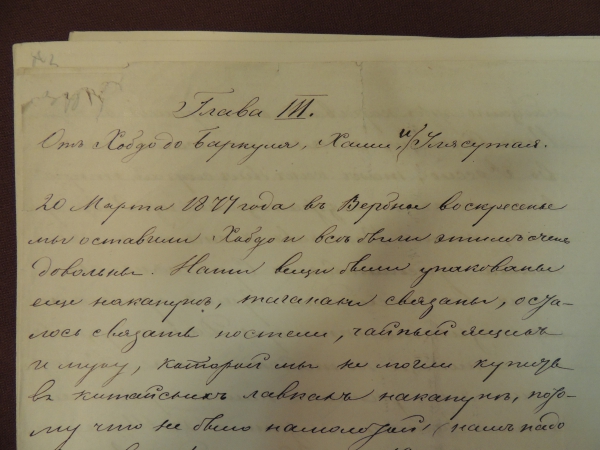 Глава III.
Отъ Хобдо до Баркуля, Хами, и Улясутая.
20 Марта 1877 года въ Вербное воскресенье
мы оставили Хобдо и всѣ были этимъ очень
довольны. Наши вещи были упакованы
еще наканунѣ, связаны, оста-
лось связать постели, чайный ящикъ
и муку, которой мы не могли купить
въ китайскихъ лавкахъ наканунѣ, пото-
му что не было намолотой, намъ надо